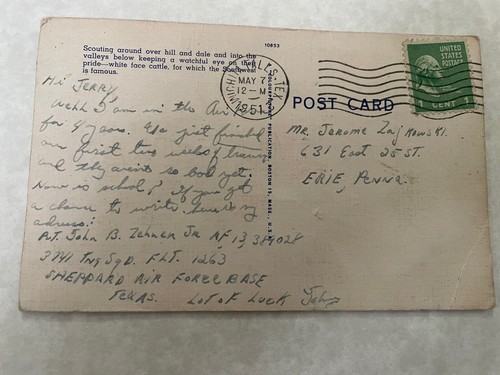 10853
Scouting around over hill and dale and into the
valleys below keeping a watchful eye on their
pride—white face cattle, for which the Southwest
is famous.
WICHITA FALLS, TEX.
MAY 7
12 - M
1951
UNITED
STATES
POSTAGE
1 CENT 1
POST CARD
Hi Jerry,
Well I am in the Air
for 4 years. We just finished
our first two weeks of training
and they arent so bad yet.
How is school? If you get
a chance to write here is my
adress:
Pvt. John B. Zehner Jr AF 13,389028
3741 Tng Sqd. FLT. 1263
SHEPPARD AIR FORCE BASE
TEXAS. LOT OF LUCK John
MR. Jerome Zajkowski.
631 East 25 ST.
ERIE, Penna.
PUBLICATION, BOSTON 15, MASS., U.S.A.